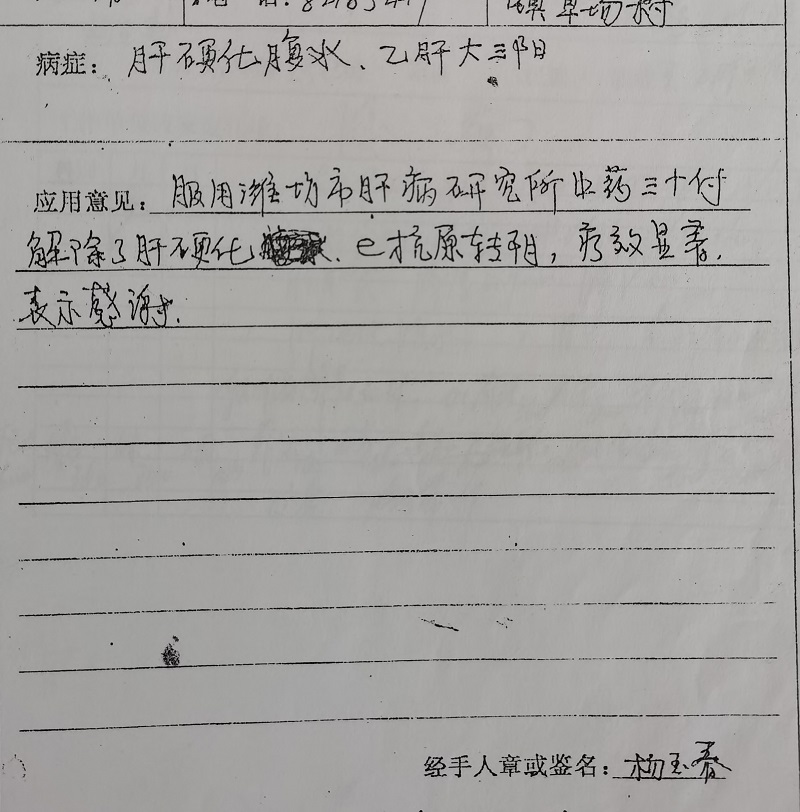 病症：肝硬化腹水、乙肝大三阳
应用意见：服用潍坊市肝病研究所中药三十付
解除了肝硬化、e抗原转阴，疗效显著，
表示感谢。
经手人章或签名：杨玉春